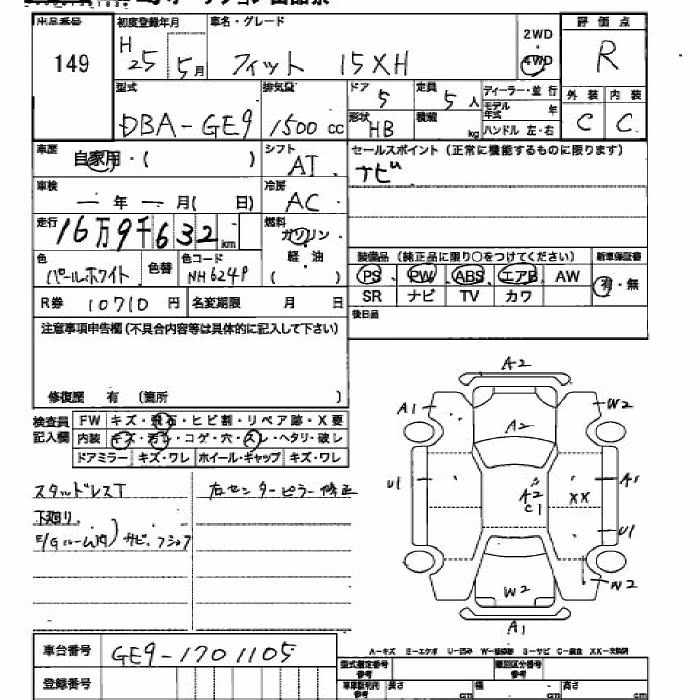 出品番号
149
初度登録年月
H25 5月
車名・グレード
フィット 15XH
2WD・4WD
評価点
R
型式
DBA-GE9
排気量
1500 CC
ドア
5
定員
5人
形状
HB
積載
kg
ディーラー・並行
モデル年式 年
ハンドル 左・右
外装
C
内装
C
車歴
自家用・( )
シフト
AT
車検
ー年ー月( 日)
冷房
AC
走行
16万9千632km
燃料
ガソリン
軽油
( )
色
パールホワイト
色替
色コード
NH624P
R券 10710円
名変期限 月 日
セールスポイント(正常に機能するものに限ります)
ナビ
装備品(純正品に限り○をつけてください)
新車保証書
PS PW ABS エアB AW
有・無
SR ナビ TV カワ
後日品
注意事項申告欄(不具合内容等は具体的に記入して下さい)
修復歴 有 (箇所 )
検査員
記入欄
FW キズ・飛石・ヒビ割・リペア跡・X要
内装 キズ・汚れ・コゲ・穴・スレ・ヘタリ・破レ
ドアミラー キズ・ワレ ホイール・キャップ キズ・ワレ
スタッドレスT
下廻り、
サビ、
右センターピラー修正
A2
A1
W2
A2
U1
A2
C1
XX
A1
U1
W2
W2
A1
A-キズ E-エクボ U-凹み W-補修跡 S-サビ C-腐食 XX-交換済
車台番号
GE9-1701105
登録番号
型式指定番号
参考
類別区分番号
参考
車庫証明用
参考
長さ cm
幅 cm
高さ cm